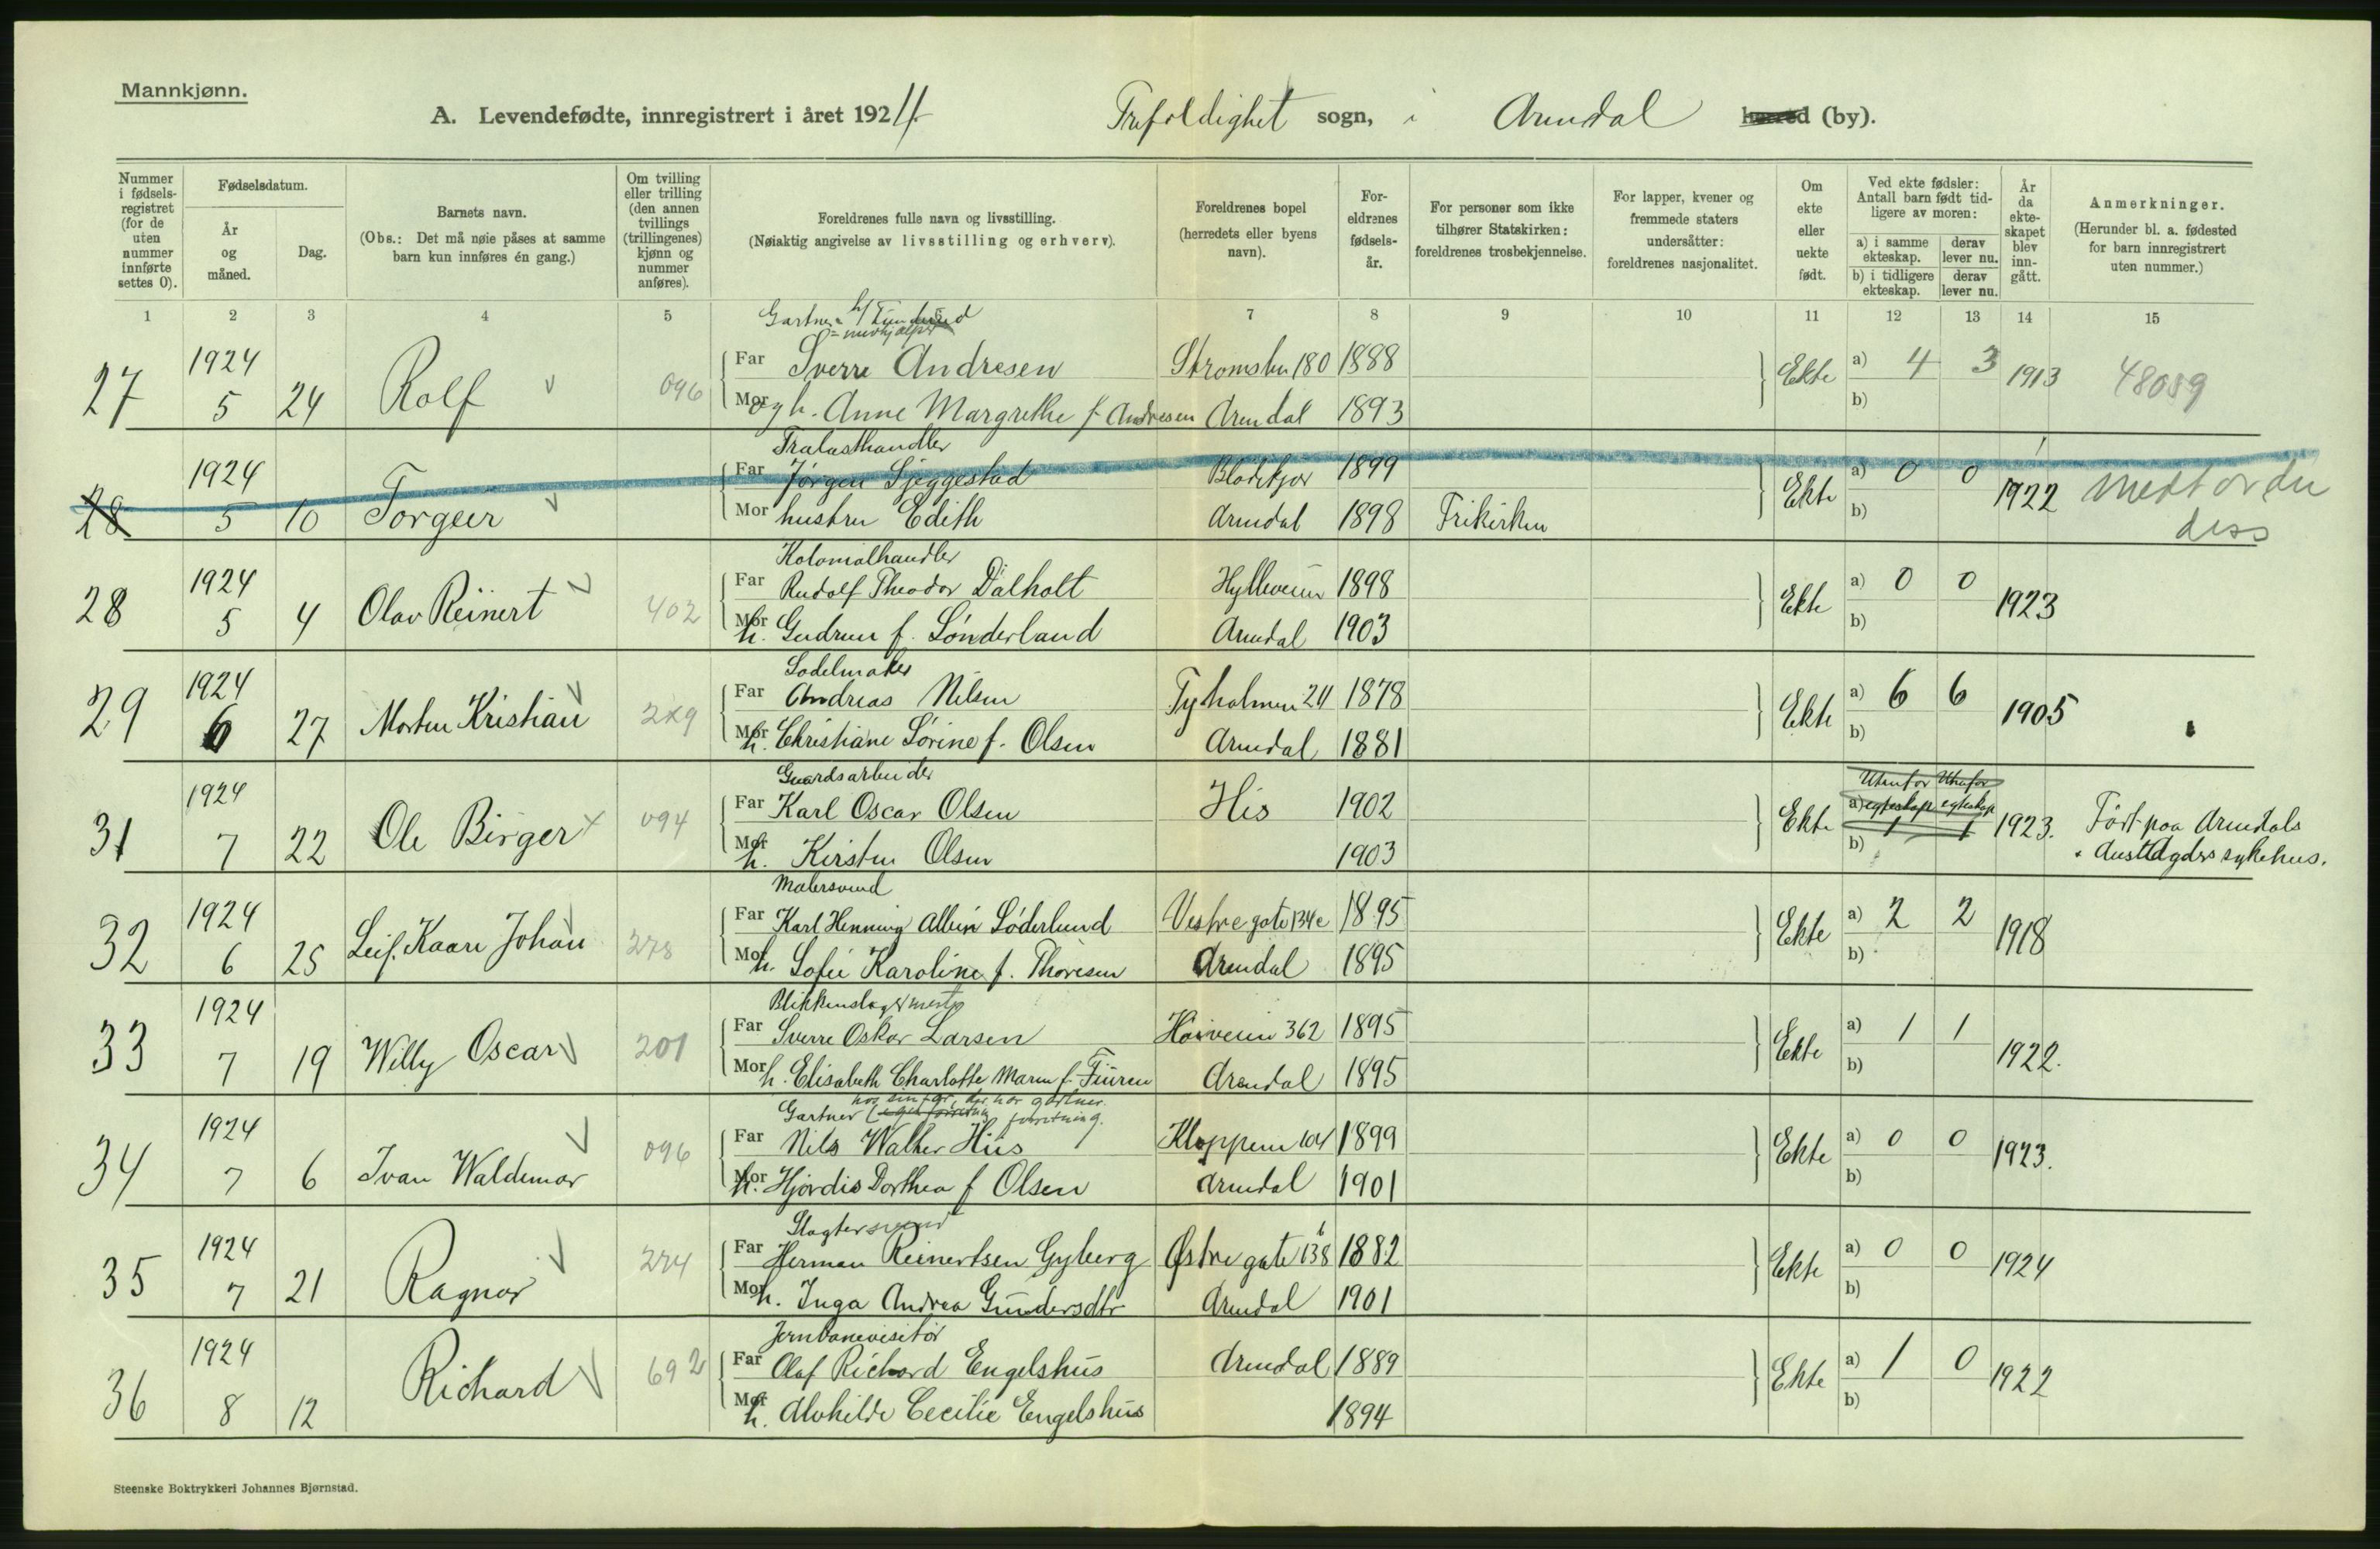 Mannkjønn.
A. Levendefødte, innregistrert i året 1924 Trefoldighet sogn, i Arendal herred (by).
Nummer i fødsels-registret (for de uten nummer innførte settes 0).
Fødselsdatum.
År og måned.
Dag.
Barnets navn.
(Obs.: Det må nøie påses at samme barn kun innføres én gang.)
Om tvilling eller trilling (den annen tvillings (trillingenes) kjønn og nummer anføres).
Foreldrenes fulle navn og livsstilling.
(Nøiaktig angivelse av livsstilling og erhverv).
Foreldrenes bopel (herredets eller byens navn).
For-eldrenes fødsels-år.
For personer som ikke tilhører Statskirken: foreldrenes trosbekjennelse.
For lapper, kvener og fremmede staters undersåtter: foreldrenes nasjonalitet.
Om ekte eller uekte født.
Ved ekte fødsler: Antall barn født tid-ligere av moren:
a) i samme ekteskap. derav lever nu.
b) i tidligere ekteskap. derav lever nu.
År da ekte-skapet blev inn-gått.
Anmerkninger.
(Herunder bl. a. fødested for barn innregistrert uten nummer.)
1 2 3 4 5 7 8 9 10 11 12 13 14 15
Gartner
27 1924 5 24 Rolf 096
Far Sverre Andresen Strømsbu 180 1888
Mor og h. Anne Margrethe f. Andresen Arendal 1893
Ekte a) 4 3 b) 1913 48089
Trælasthandler
28 1924 5 10 Torgeir
Far Jørgen Sjeggestad Blødekjær 1899
Mor hustru Edith Arendal 1898 Frikirken
Ekte a) 0 0 b) 1922 diss
Kolonialhandler
28 1924 5 4 Olav Reinert 402
Far Rudolf Theodor Dalholt Hylleveien 1898
Mor h. Gudrun f. Sønderland Arendal 1903
Ekte a) 0 0 b) 1923
Sadelmaker
29 1924 6 27 Morten Kristian 229
Far Andreas Nilsen Tyholmen 24 1878
Mor h. Christiane Sørine f. Olsen Arendal 1881
Ekte a) 6 6 b) 1905
Guardsarbeider
31 1924 7 22 Ole Birger 094
Far Karl Oscar Olsen His 1902
Mor h. Kirsten Olsen 1903
Ekte Utenfor Utenfor a) egteskap egteskap 1 1 b) 1923.
Født paa Arendals
Austagders sykehus.
Malersvend
32 1924 6 25 Leif Kaare Johan 278
Far Karl Henning Albin Søderlund Vestre gate 134c 1895
Mor h. Sofie Karoline f. Thoresen Arendal 1895
Ekte a) 2 2 b) 1918
Blikkenslagermester
33 1924 7 19 Willy Oscar 201
Far Sverre Oskar Larsen Høiveien 362 1895
Mor h. Elisabeth Charlotte Maren f. Fiuren Arendal 1895
Ekte a) 1 1 b) 1922.
hos sin far, der har gartner
Gartner (egen forretning forretning.
34 1924 7 6 Ivan Waldemar 096
Far Nils Walther Hiis Kloppene 104 1899
Mor h. Hjørdis Dorthea f Olsen Arendal 1901
Ekte a) 0 0 b) 1923.
Slagtersvend
35 1924 7 21 Ragnar 224
Far Herman Reinertsen Gyberg Østre gate 138 b 1882
Mor h. Inga Andrea Gundersdtr Arendal 1901
Ekte a) 0 0 b) 1924
Jernbanevisitør
36 1924 8 12 Richard 692
Far Olaf Richard Engelshus Arendal 1889
Mor h. Alvhilde Cecilie Engelshus 1894
Ekte a) 1 0 b) 1922
Steenske Boktrykkeri Johannes Bjørnstad.